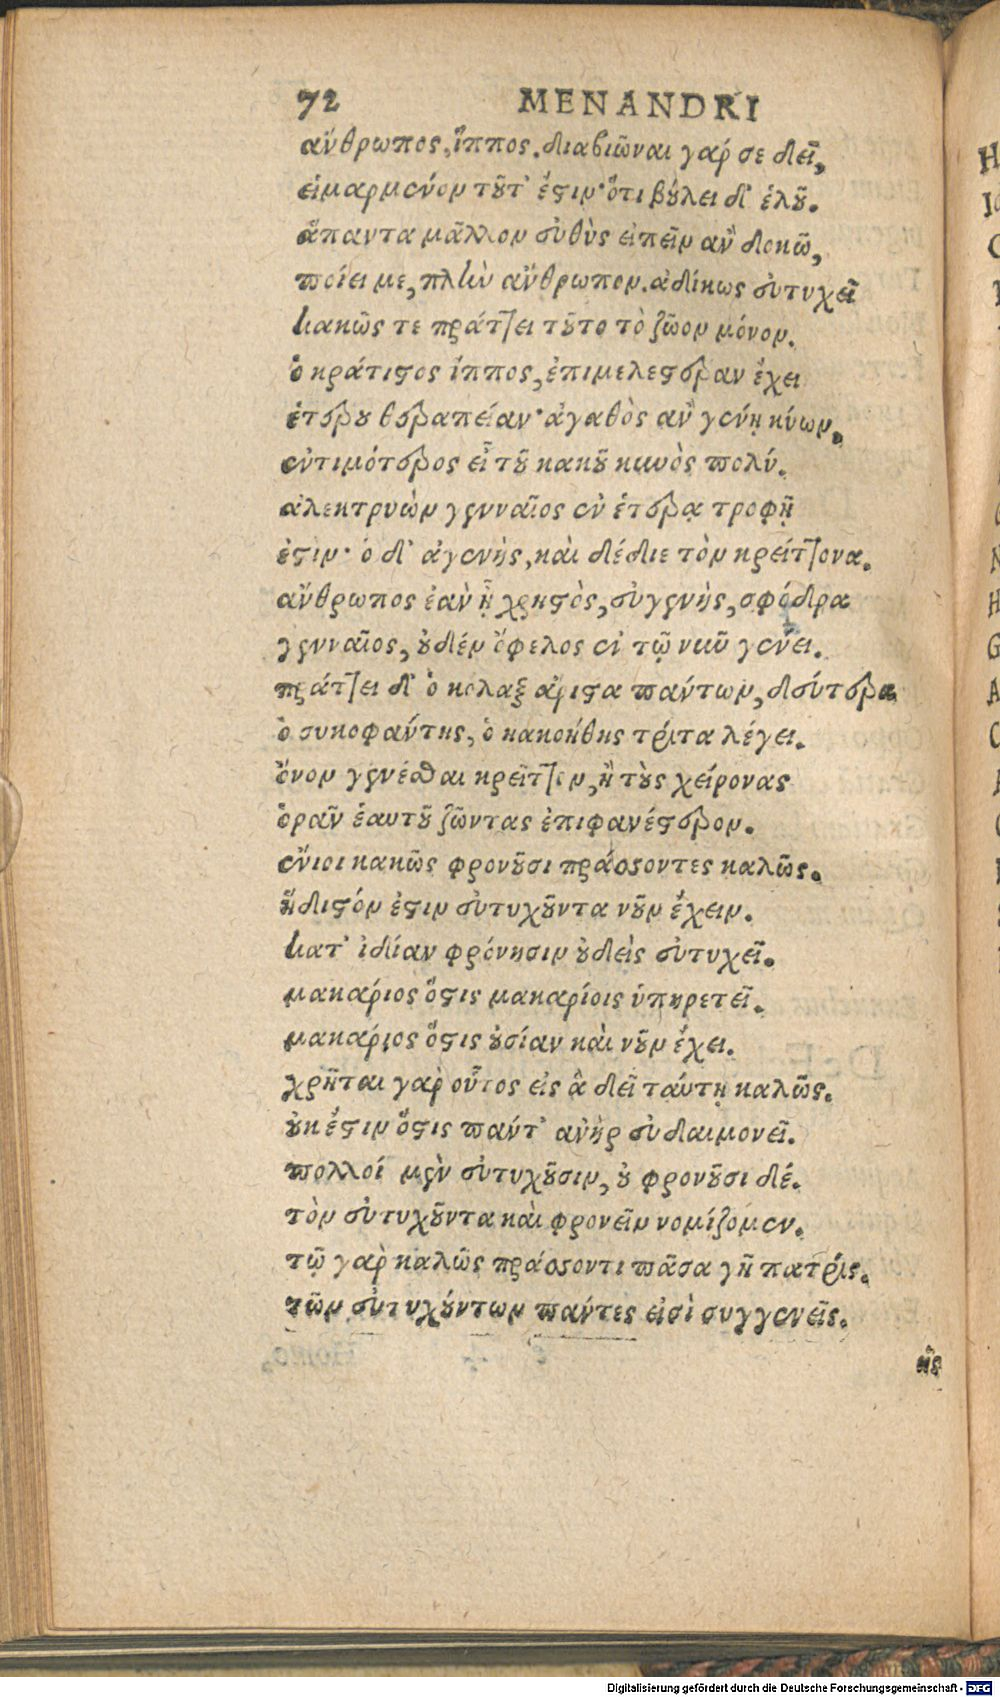 72 MENANDRI
ἄνθρωπος, ἵππος. διαβιῶναι γάρ σε δεῖ,
εἱμαρμένον τοῦτ' ἐστιν· ὅτι βούλει δ' ἑλοῦ.
ἅπαντα μᾶλλον εὐθὺς εἰπεῖν ἂν δοκῶ,
ποίει με, πλὴν ἄνθρωπον. ἀδίκως εὐτυχεῖ
κακῶς τε πράττει τοῦτο τὸ ζῶον μόνον.
ὁ κράτιστος ἵππος, ἐπιμελεστέραν ἔχει
ἑτέρου θεραπείαν· ἀγαθὸς ἂν γένῃ κύων,
ἐντιμότερος εἶ τοῦ κακοῦ κυνὸς πολύ.
ἀλεκτρυὼν γενναῖος ἐν ἑτέρᾳ τροφῇ
ἐστιν· ὁ δ' ἀγενὴς, καὶ δέδιε τὸν κρείττονα.
ἄνθρωπος ἐὰν ᾖ χρηστὸς, εὐγενὴς, σφόδρα
γενναῖος, οὐδὲν ὄφελος ἐν τῷ νυῦ γένει.
πράττει δ' ὁ κόλαξ ἄριστα πάντων, δεύτερα
ὁ συκοφάντης, ὁ κακοήθης τρίτα λέγει.
ὄνον γενέσθαι κρεῖττον, ἢ τοὺς χείρονας
ὁρᾶν ἑαυτοῦ ζῶντας ἐπιφανέστερον.
ἔνιοι κακῶς φρονοῦσι πράσσοντες καλῶς.
ἥδιστόν ἐστιν εὐτυχοῦντα νοῦν ἔχειν.
κατ' ἰδίαν φρόνησιν οὐδεὶς εὐτυχεῖ.
μακάριος ὅστις μακαρίοις ὑπηρετεῖ.
μακάριος ὅστις οὐσίαν καὶ νοῦν ἔχει.
χρῆται γὰρ οὗτος εἰς ἃ δεῖ ταύτῃ καλῶς.
οὐκ ἔστιν ὅστις πάντ' ἀνὴρ εὐδαιμονεῖ.
πολλοί μὲν εὐτυχοῦσιν, οὐ φρονοῦσι δέ.
τὸν εὐτυχοῦντα καὶ φρονεῖν νομίζομεν.
τῷ γὰρ καλῶς πράσσοντι πᾶσα γῆ πατρίς.
τῶν εὐτυχούντων πάντες εἰσὶ συγγενεῖς.
Digitalisierung gefördert durch die Deutsche Forschungsgemeinschaft - DFG